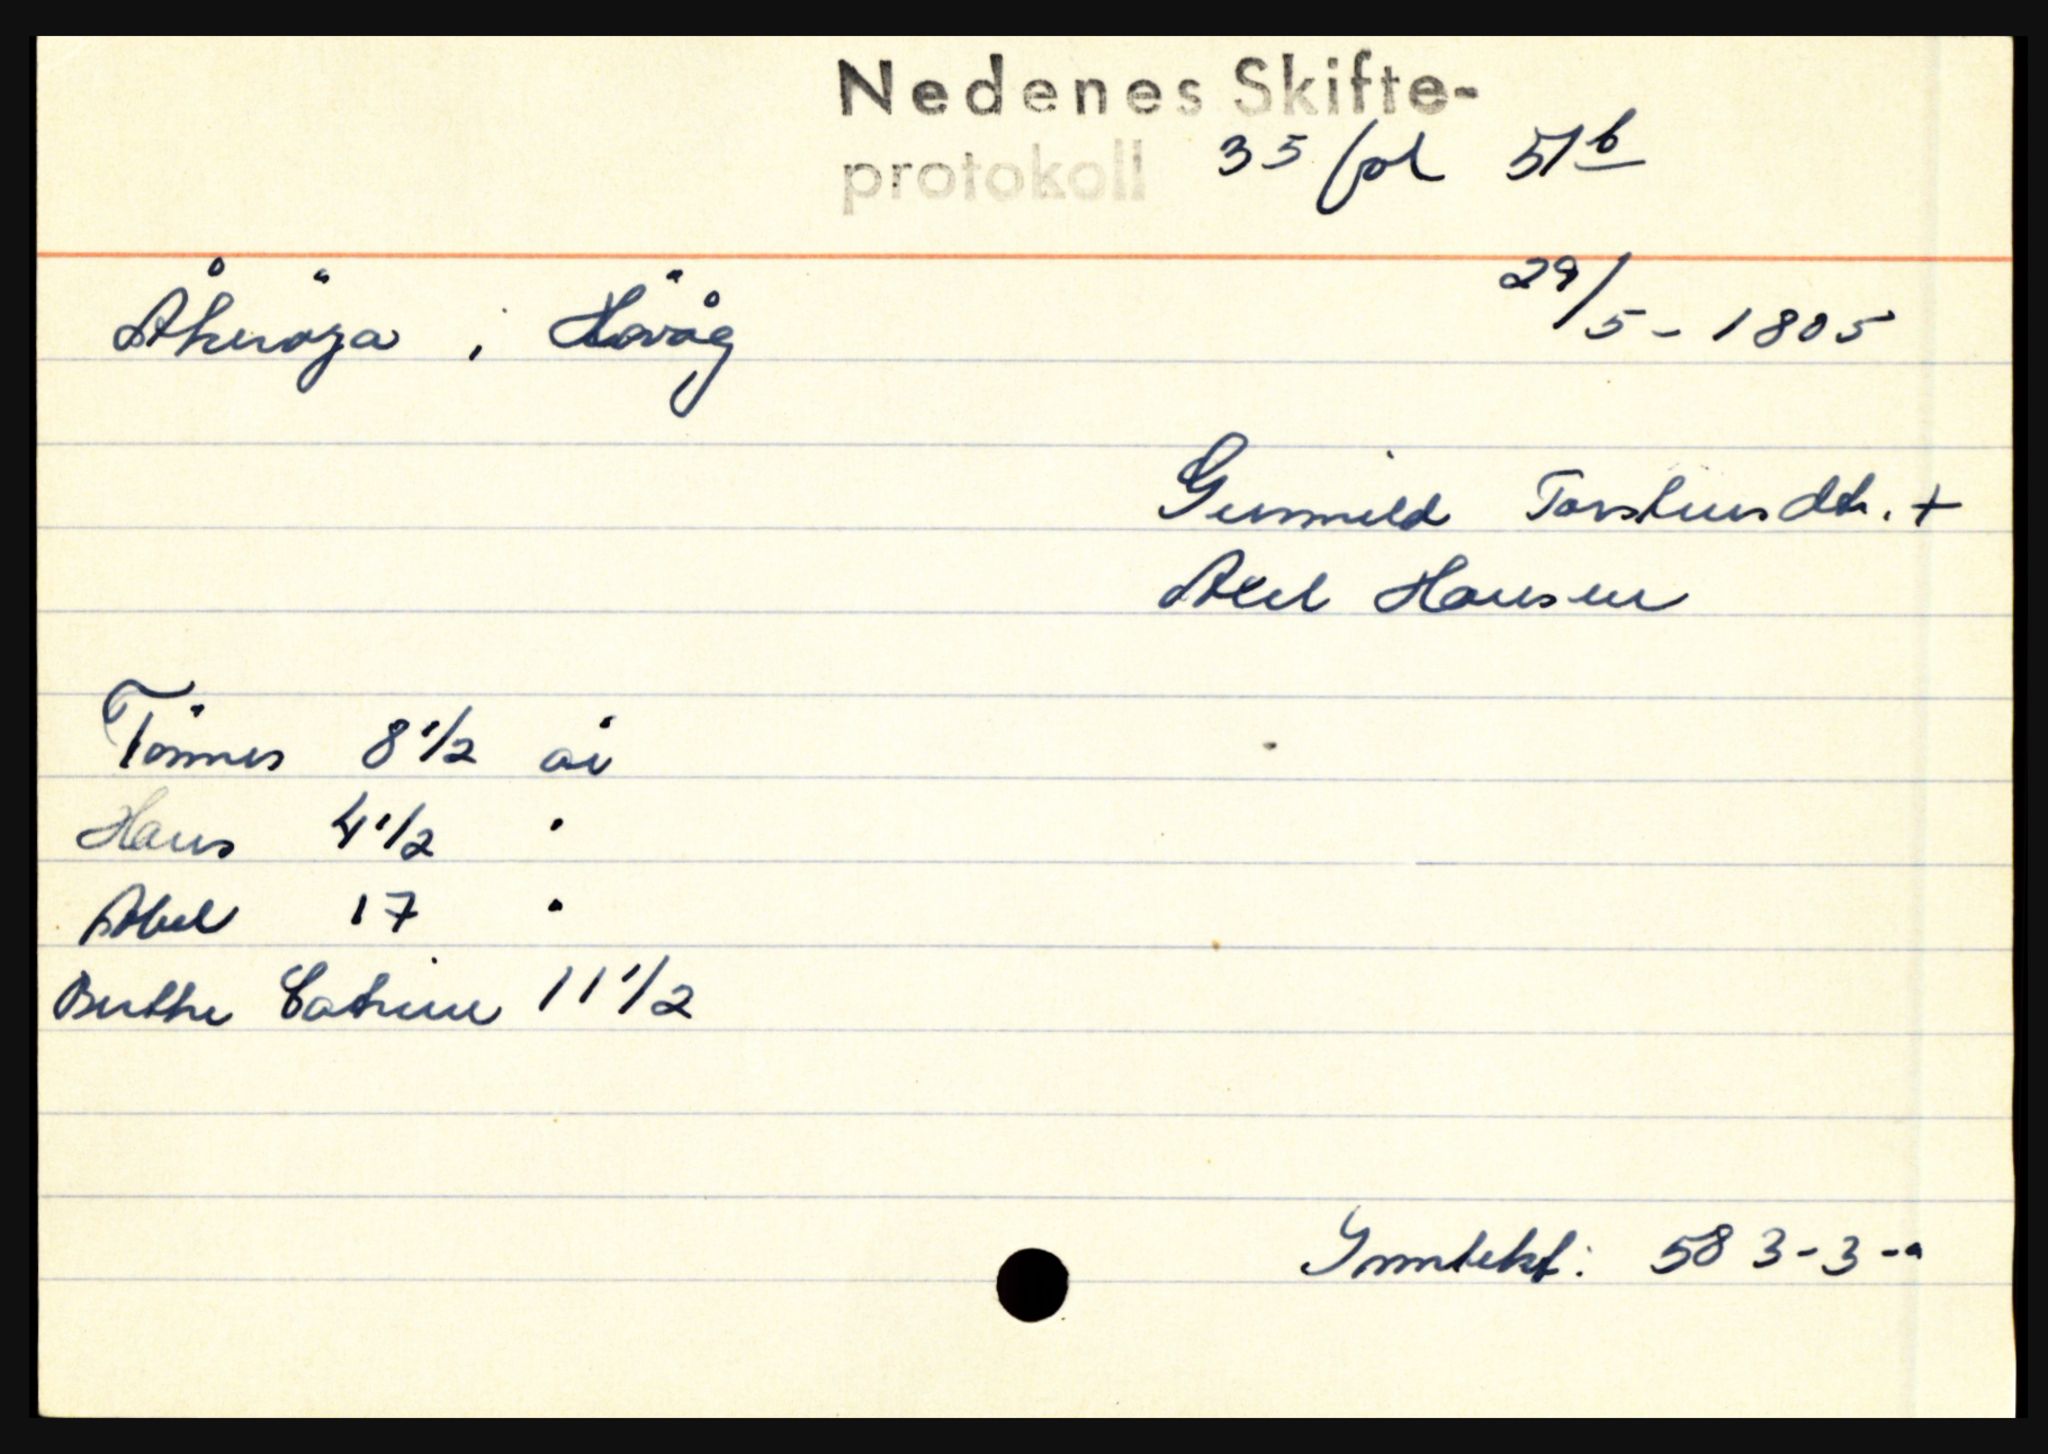 Nedenes Skifte-
protokoll 35 fol 51b
Åkerøya i Høvåg 29/5-1805
Gunnild Torstensdtr. +
Axel Hansen
Tønnes 8 1/2 år
Hans 4 1/2 "
Abel 17 "
Berthe Catrine 11 1/2
Inntekt: 583-3-"